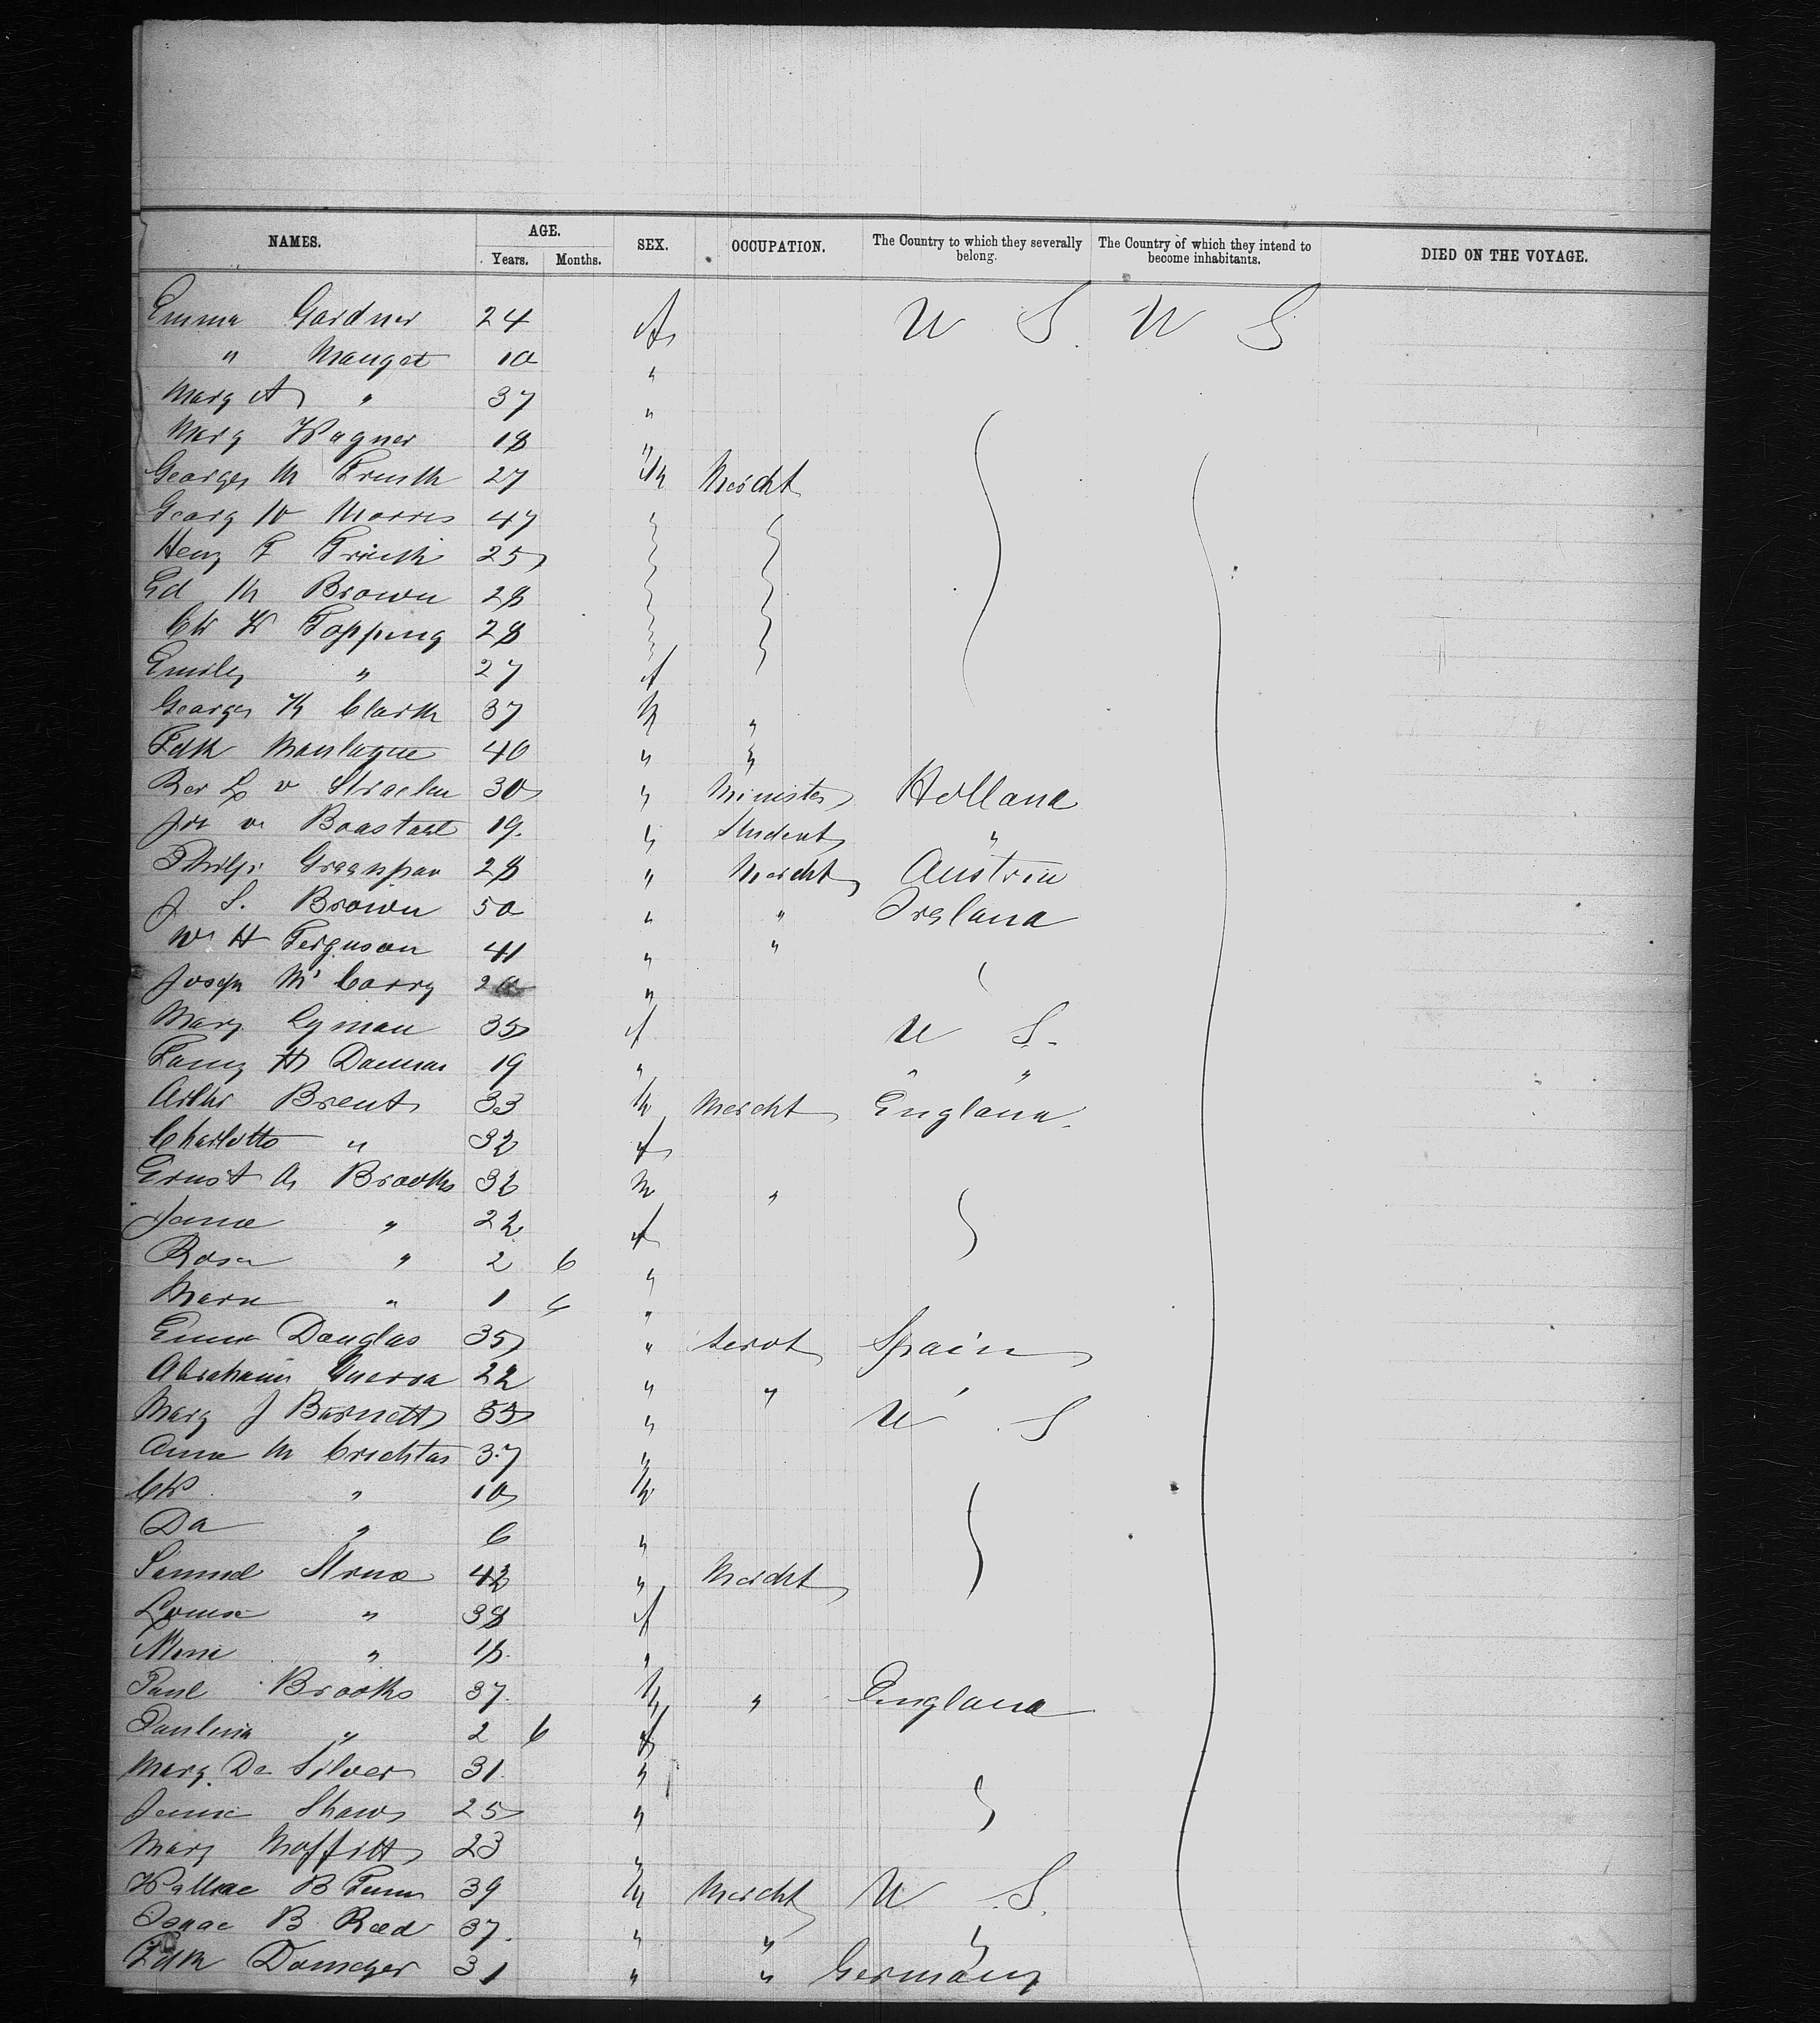 NAMES. AGE. SEX. OCCUPATION. The Country to which they severally belong. The Country of which they intend to become inhabitants. DIED ON THE VOYAGE.
Years. Months.
Emma Gardner 24 f U S. U S
" 10 "
Mary A " 37 "
Mary Wagner 18 "
George M 27 M Mercht
Georg W Morris 47
Heny F 25
Ed M Brown 28
Ch W Topping 28
Emily " 27 f
George H Clark 37 M "
Fdk Montague 40 " "
Rev L v Straelen 30 " Minister Holland
19. " Student "
Philip Greenspan 28 " Mercht Austria
J S. Brown 50 " " Ireland
W H Ferguson 41 " "
Joseph McCarry "
Mary Lyman 35 f U S.
Fanny H 19 " " "
Arthr Brent 33 M Mercht England.
Charlotte " 32 f
Ernst A Brooks 32 M "
Jane " 22 f
Rosa " 2 6 "
" 1 6 "
Emma Douglas 35 " Servt Spain
Abraham Guerra 22 " "
Mary J Barnett 55 " U S
Anna M Crichton 37 "
Ch " 10 M
Da " 6 "
Samuel 42 " Mercht
Louise " 38 f
" "
Paul Brooks 37. M " England
Paulina " 2 6 f
Mary De Silver 31. "
Jennie Shaw 25 "
Mary Moffitt 23 "
Wallace B 39 M Mercht U S.
Isaac B Reed 37. " " "
Fdk 31 " " Germany